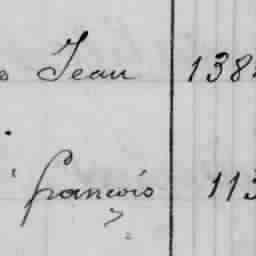 Jean 138
françois 113